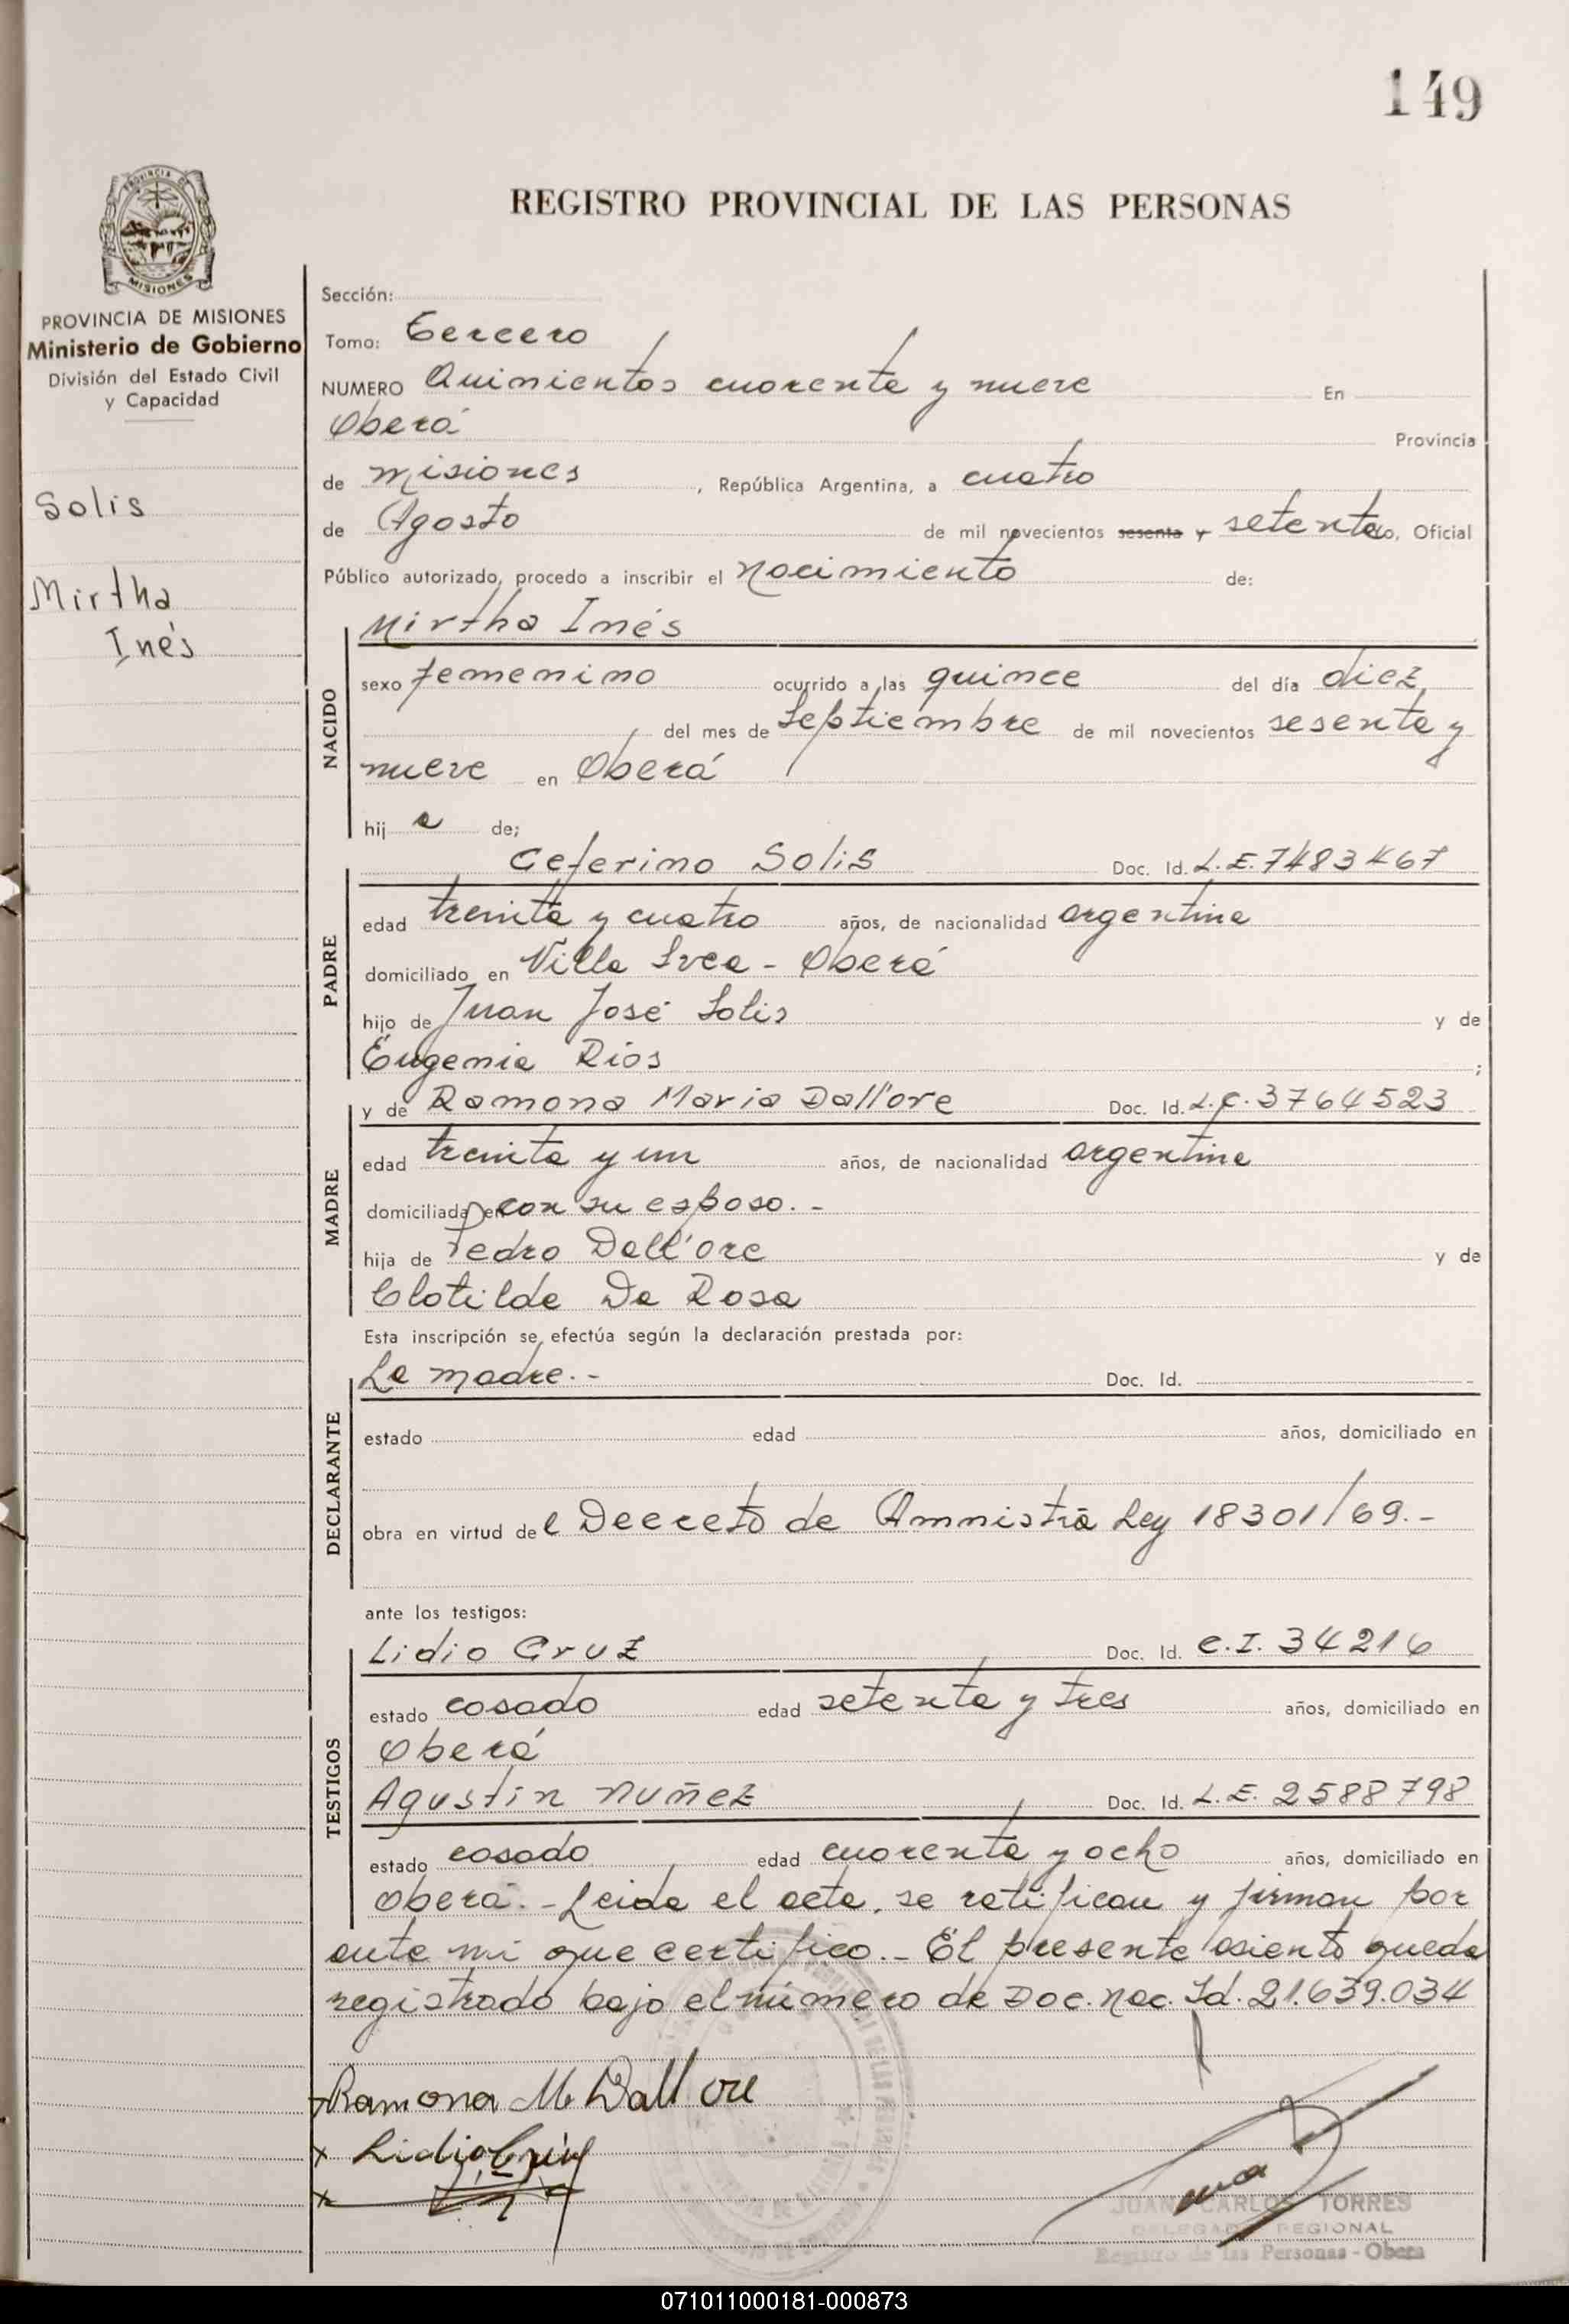 149
REGISTRO PROVINCIAL DE LAS PERSONAS
PROVINCIA DE
MISIONES
PROVINCIA DE MISIONES
Ministerio de Gobierno
División del Estado Civil
y Capacidad
Solis
Mirtha
Inés
Sección:
Tomo: Tercero
NUMERO Quinientos cuarenta y nueve En
Oberá Provincia
de Misiones, República Argentina, a cuatro
de Agosto de mil novecientos sesenta y setenta, Oficial
Público autorizado, procedo a inscribir el nacimiento de:
NACIDO
Mirtha Inés
sexo femenino ocurrido a las quince del día diez
del mes de Septiembre de mil novecientos sesenta y
nueve en Oberá
hij a de;
PADRE
Ceferino Solis Doc. Id. L.E. 7483467
edad treinta y cuatro años, de nacionalidad argentina
domiciliado en Villa Svea - Oberá
hijo de Juan José Solis y de
Eugenia Rios ;
MADRE
y de Ramona Maria Dall'ore Doc. Id. L.C. 3764523
edad treinta y un años, de nacionalidad argentina
domiciliada en con su esposo. -
hija de Pedro Dall'ore y de
Clotilde Da Rosa
Esta inscripción se efectúa según la declaración prestada por:
DECLARANTE
La madre. - Doc. Id.
estado edad años, domiciliado en
obra en virtud del Decreto de Amnistia Ley 18301/69. -
ante los testigos:
TESTIGOS
Lidio Cruz Doc. Id. C.I. 34216
estado casado edad setenta y tres años, domiciliado en
Oberá
Agustin Nuñez Doc. Id. L.E. 2588798
estado casado edad cuarenta y ocho años, domiciliado en
Oberá. - Leida el acta, se ratifican y firman por
ante mi que certifico. - El presente asiento queda
registrado bajo el número de Doc. Nac. Id. 21.639.034
Ramona M Dall ore
x Lidio Cruz
x
JUAN CARLOS TORRES
DELEGADO REGIONAL
Registro de las Personas - Obera
071011000181-000873